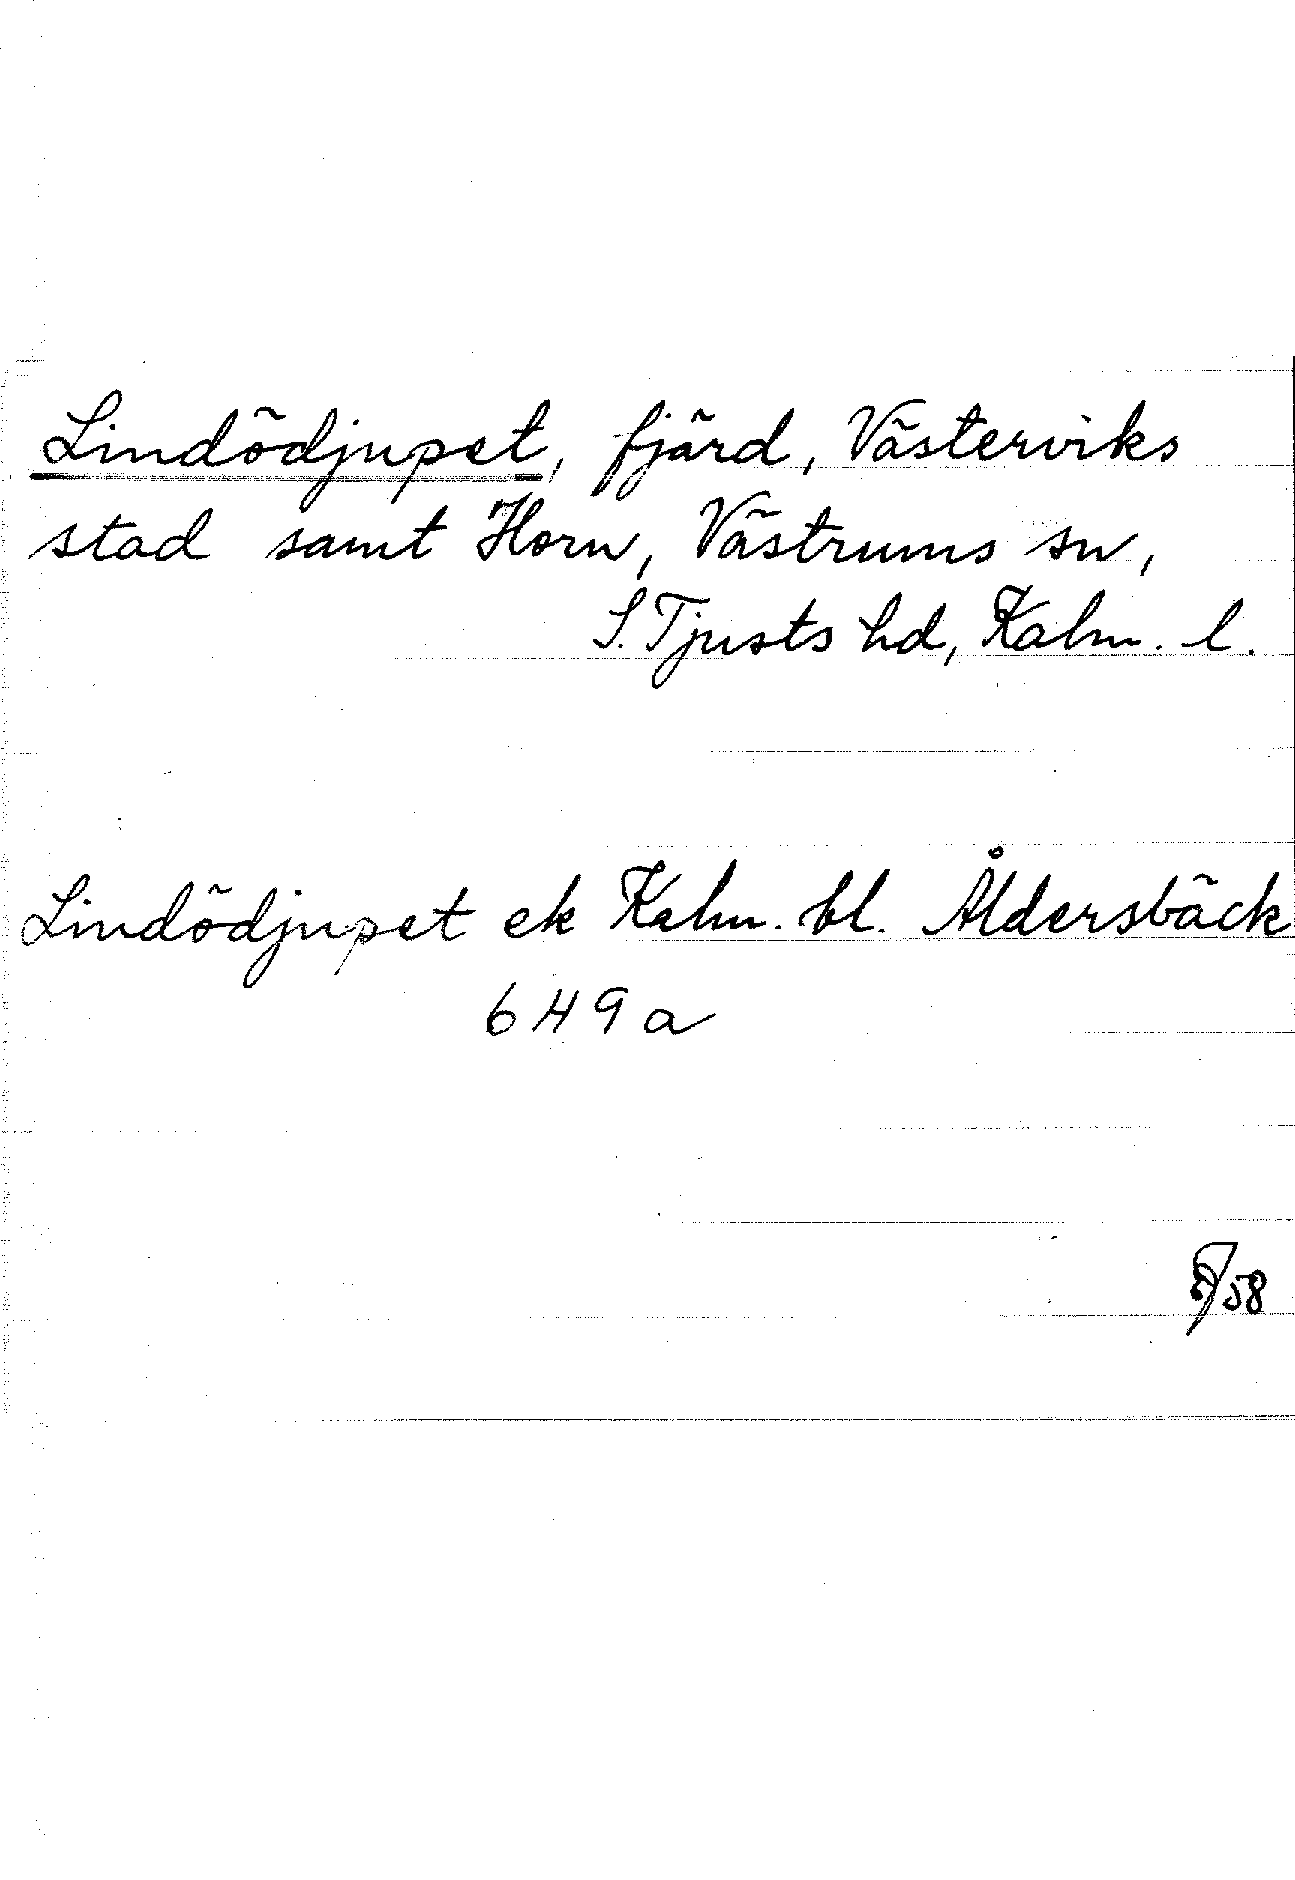 Lindödjupet, fjärd, Västerviks
stad samt Horn, Västrums sn,
S. Tjusts hd, Kalm. l.
Lindödjupet ek Kalm. bl. Åldersbäck
6 H 9 a
58